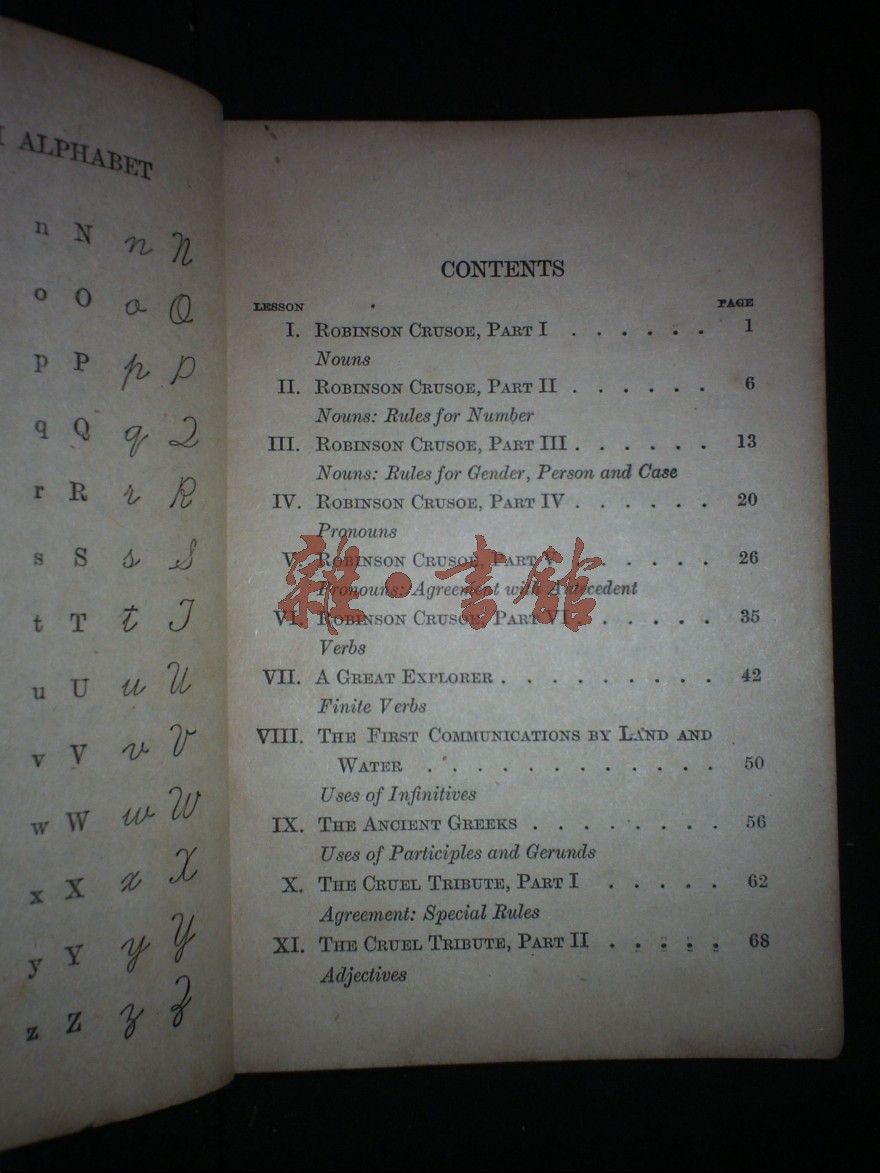 ALPHABET
n N n N
o O o O
p P p P
q Q q Q
r R r R
s S s S
t T t T
u U u U
v V v V
w W w W
x X x X
y Y y Y
z Z z Z
CONTENTS
LESSON PAGE
I. ROBINSON CRUSOE, PART I . . . . . . 1
Nouns
II. ROBINSON CRUSOE, PART II . . . . . . 6
Nouns: Rules for Number
III. ROBINSON CRUSOE, PART III . . . . . . 13
Nouns: Rules for Gender, Person and Case
IV. ROBINSON CRUSOE, PART IV . . . . . . 20
Pronouns
V. ROBINSON CRUSOE, PART V . . . . . . 26
Pronouns: Agreement with Antecedent
VI. ROBINSON CRUSOE, PART VI . . . . . . 35
Verbs
VII. A GREAT EXPLORER . . . . . . . . . 42
Finite Verbs
VIII. THE FIRST COMMUNICATIONS BY LAND AND
WATER . . . . . . . . . . . . 50
Uses of Infinitives
IX. THE ANCIENT GREEKS . . . . . . . . 56
Uses of Participles and Gerunds
X. THE CRUEL TRIBUTE, PART I . . . . . 62
Agreement: Special Rules
XI. THE CRUEL TRIBUTE, PART II . . . . . 68
Adjectives
雜·書館